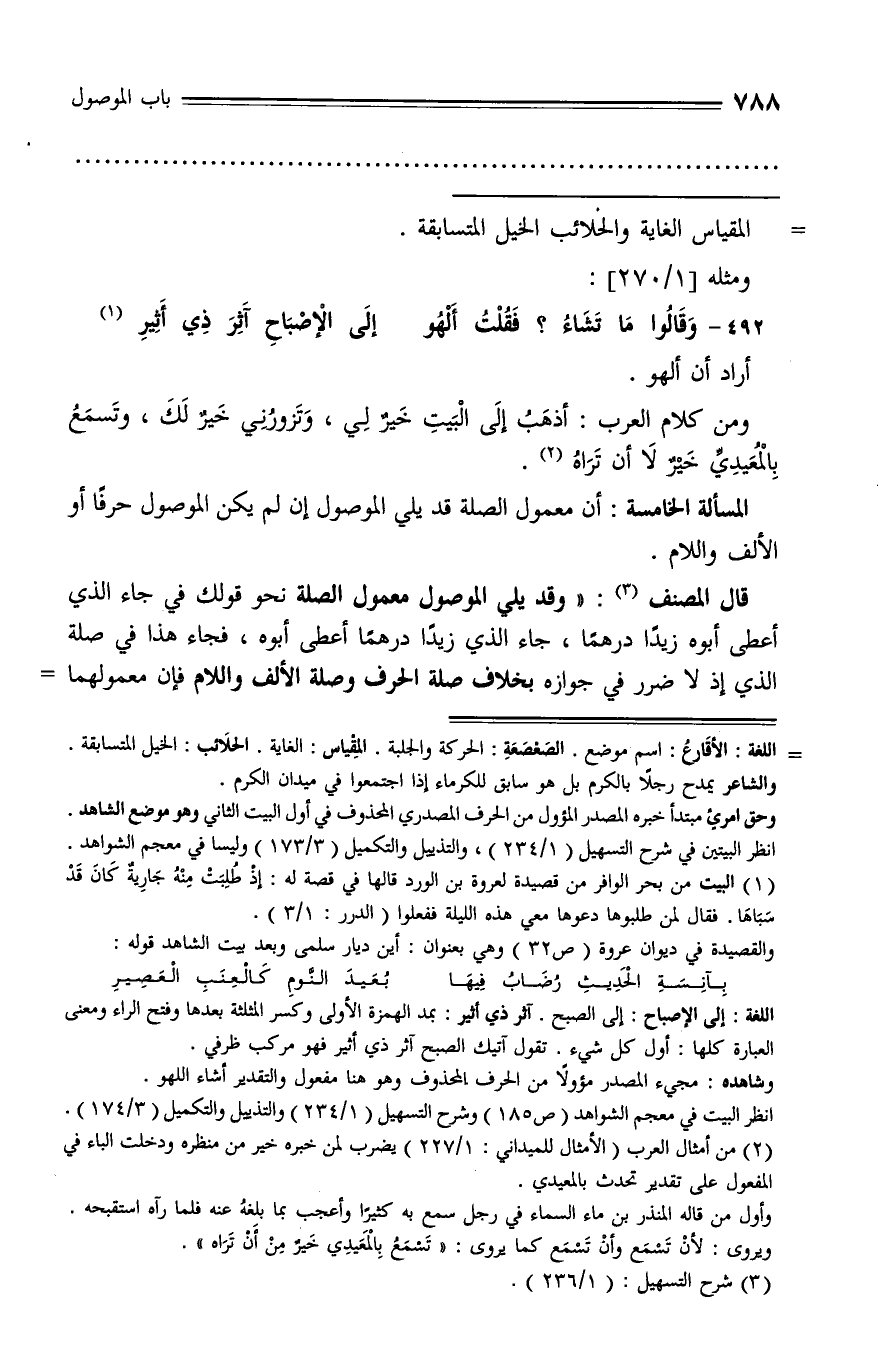 ٧٨٨ باب الموصول
................................................................
= المقياس الغاية والحلائب الخيل المتسابقة .
ومثله [٢٧٠/١] :
٤٩٢ - وَقَالُوا مَا تَشَاءُ ؟ فَقُلْتُ أَلْهُو إلَى الْإصْبَاحِ آثِرَ ذِي أَثِيرِ (١)
أراد أن ألهو .
ومن كلام العرب : أذهَبُ إلَى الْبَيتِ خَيرٌ لِي ، وَتَزورُنِي خَيرٌ لَكَ ، وتَسمَعُ
بِالْمُعَيدِيِّ خَيْرٌ لَا أن تَرَاهُ (٢) .
المسألة الخامسة : أن معمول الصلة قد يلي الموصول إن لم يكن الموصول حرفًا أو
الألف واللام .
قال المصنف (٣) : « وقد يلي الموصول معمول الصلة نحو قولك في جاء الذي
أعطى أبوه زيدًا درهمًا ، جاء الذي زيدًا درهمًا أعطى أبوه ، فجاء هذا في صلة
الذي إذ لا ضرر في جوازه بخلاف صلة الحرف وصلة الألف واللام فإن معمولهما =
= اللغة : الأقَارعُ : اسم موضع . الصَعْصَعَةِ : الحركة والجلبة . المِقْياس : الغاية . الحلَائب : الخيل المتسابقة .
والشاعر يمدح رجلًا بالكرم بل هو سابق للكرماء إذا اجتمعوا في ميدان الكرم .
وحق امرئ مبتدأ خبره المصدر المؤول من الحرف المصدري المحذوف في أول البيت الثاني وهو موضع الشاهد .
انظر البيتين في شرح التسهيل ( ٢٣٤/١ ) ، والتذييل والتكميل ( ١٧٣/٣ ) وليسا في معجم الشواهد .
(١) البيت من بحر الوافر من قصيدة لعروة بن الورد قالها في قصة له : إذْ طُلِبَتْ مِنْهُ جَارِيةٌ كَانَ قَدْ
سَبَاهَا . فقال لمن طلبوها دعوها معي هذه الليلة ففعلوا ( الدرر : ٣/١ ) .
والقصيدة في ديوان عروة ( ص٣٢ ) وهي بعنوان : أين ديار سلمى وبعد بيت الشاهد قوله :
بِـآنِسَـةِ الْحَدِيـثِ رُضَـابُ فِيهَـا بُعَـيـدَ الـنَّـومِ كَـالْـعِـنَـبِ الْـعَصِـيـرِ
اللغة : إلى الإصباح : إلى الصبح . آثر ذي أثير : بمد الهمزة الأولى وكسر المثلثة بعدها وفتح الراء ومعنى
العبارة كلها : أول كل شيء . تقول آتيك الصبح آثر ذي أثير فهو مركب ظرفي .
وشاهده : مجيء المصدر مؤولًا من الحرف المحذوف وهو هنا مفعول والتقدير أشاء اللهو .
انظر البيت في معجم الشواهد ( ص١٨٥ ) وشرح التسهيل ( ٢٣٤/١ ) والتذييل والتكميل ( ١٧٤/٣ ) .
(٢) من أمثال العرب ( الأمثال للميداني : ٢٢٧/١ ) يضرب لمن خبره خير من منظره ودخلت الباء في
المفعول على تقدير تحدث بالمعيدي .
وأول من قاله المنذر بن ماء السماء في رجل سمع به كثيرًا وأعجب بما بلغهُ عنه فلما رآه استقبحه .
ويروى : لأنْ تَسْمَع وأنْ تَسْمَع كما يروى : « تَسْمَعُ بِالْمَعَيدِي خَيرٌ مِنْ أَنْ تَرَاه » .
(٣) شرح التسهيل : ( ٢٣٦/١ ) .